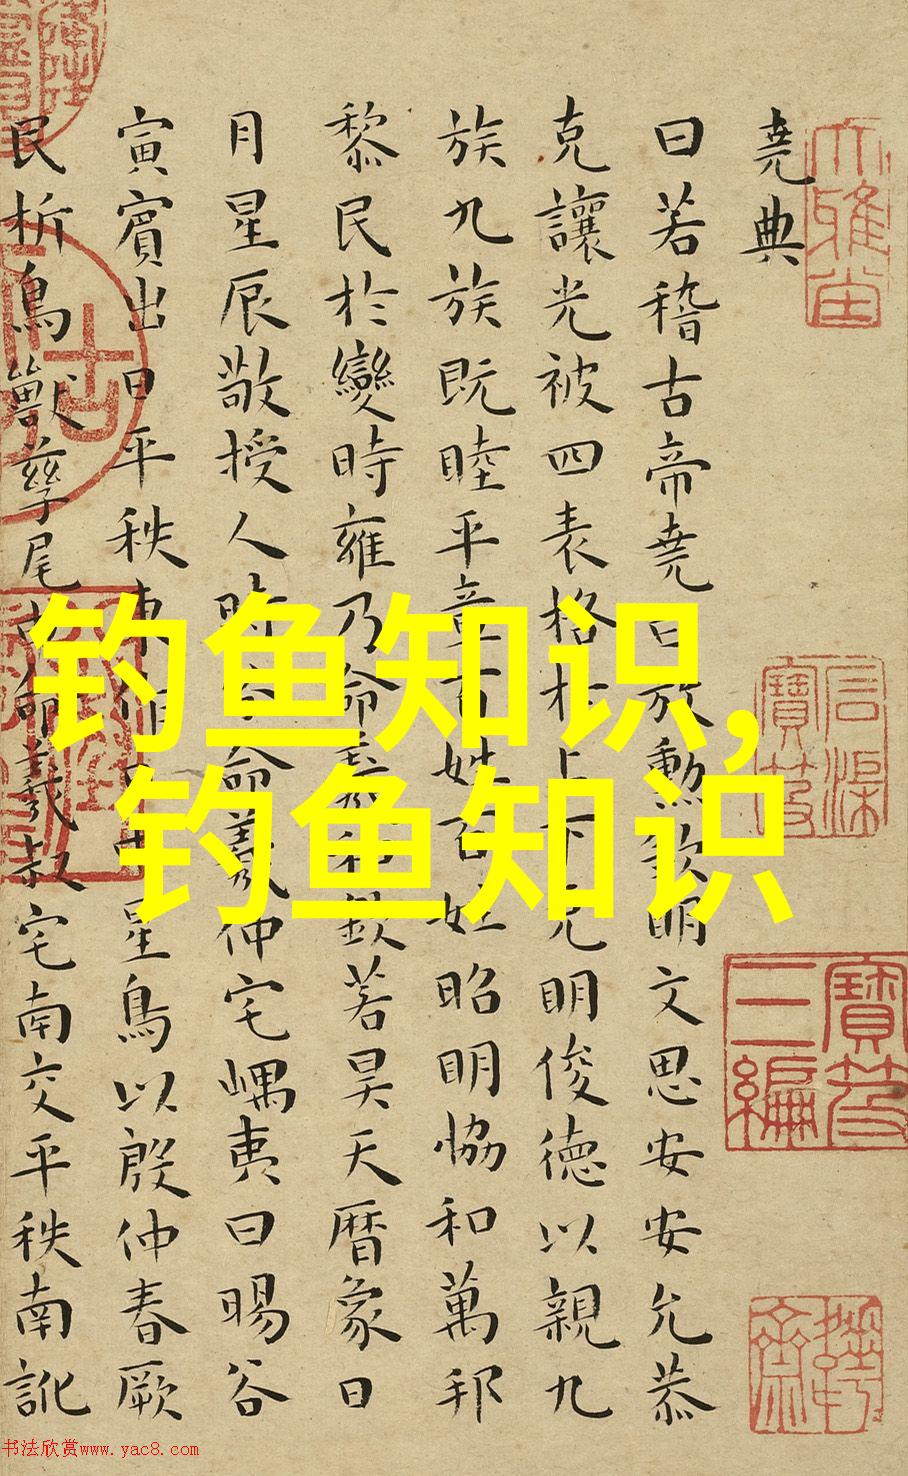 堯典
曰若稽古帝堯曰放勳欽明文思安安允恭
克讓光被四表格於上下克明俊德以親九
族九族既睦平章百姓百姓昭明恊和萬邦
黎民於變時雍乃命羲和欽若昊天暦象日
月星辰敬授人時分命羲仲宅嵎夷曰暘谷
寅賓出日平秩東作日中星鳥以殷仲春厥
民析鳥獸孳尾申命羲叔宅南交平秩南訛
钓鱼知识,
钓鱼知识
石渠
寶笈
寶笈
三編
书法欣赏www.yac8.com